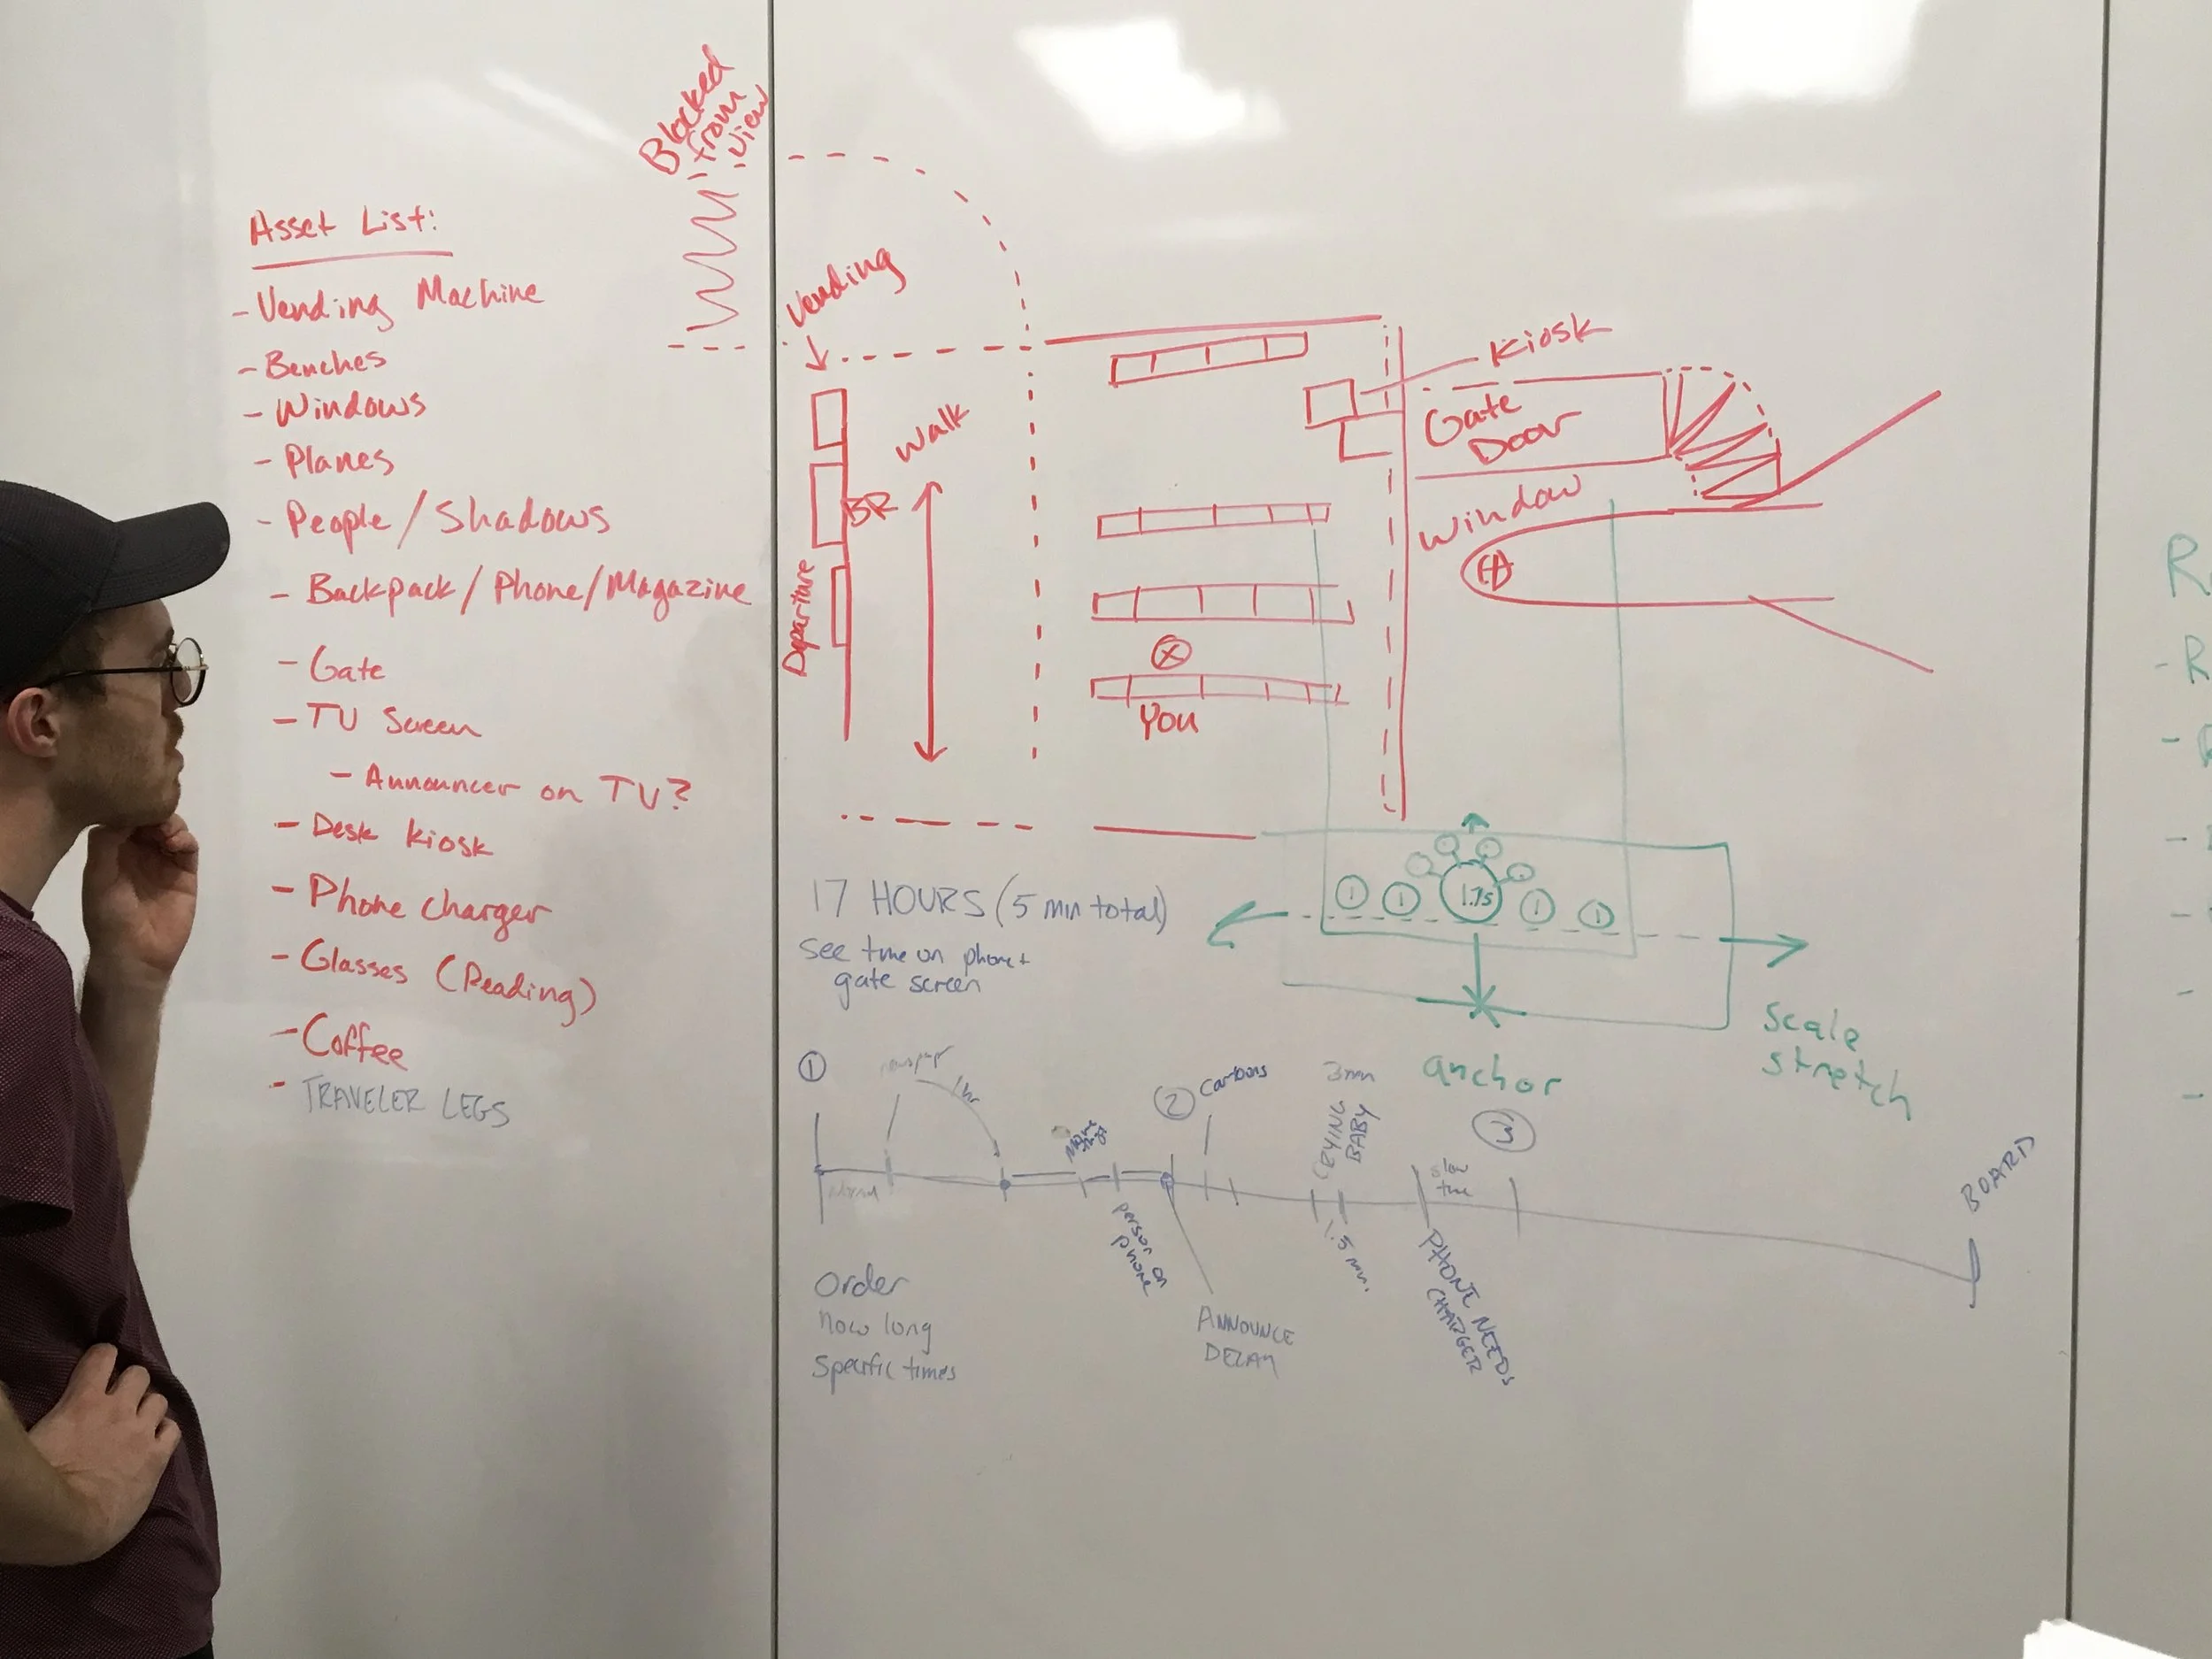 Asset List:
- Vending Machine
- Benches
- Windows
- Planes
- People/Shadows
- Backpack/Phone/Magazine
- Gate
- TV Screen
- Announcer on TV?
- Desk Kiosk
- Phone charger
- Glasses (Reading)
- Coffee
- TRAVELER LEGS
Blocked
from
view
Vending
Walk
BR
Departure
You
Kiosk
Gate
Door
Window
17 HOURS (5 min total)
see time on phone+
gate screen
1
1
1.75
1
1
anchor
Scale
stretch
1
1hr
person on
phone
2
Cartoons
ANNOUNCE
DELAY
3min
CRYING
BABY
1.5 min.
PHONE NEEDS
CHARGER
3
BOARD
Order
how long
Specific times
R
- R